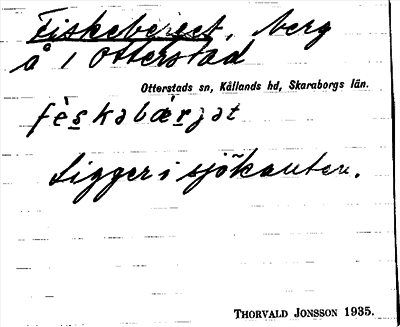 Fiskeberget, berg
å i Otterstad
Otterstads sn, Kållands hd, Skaraborgs län.
fèskabǽrjat
Ligger i sjökanten.
THORVALD JONSSON 1935.